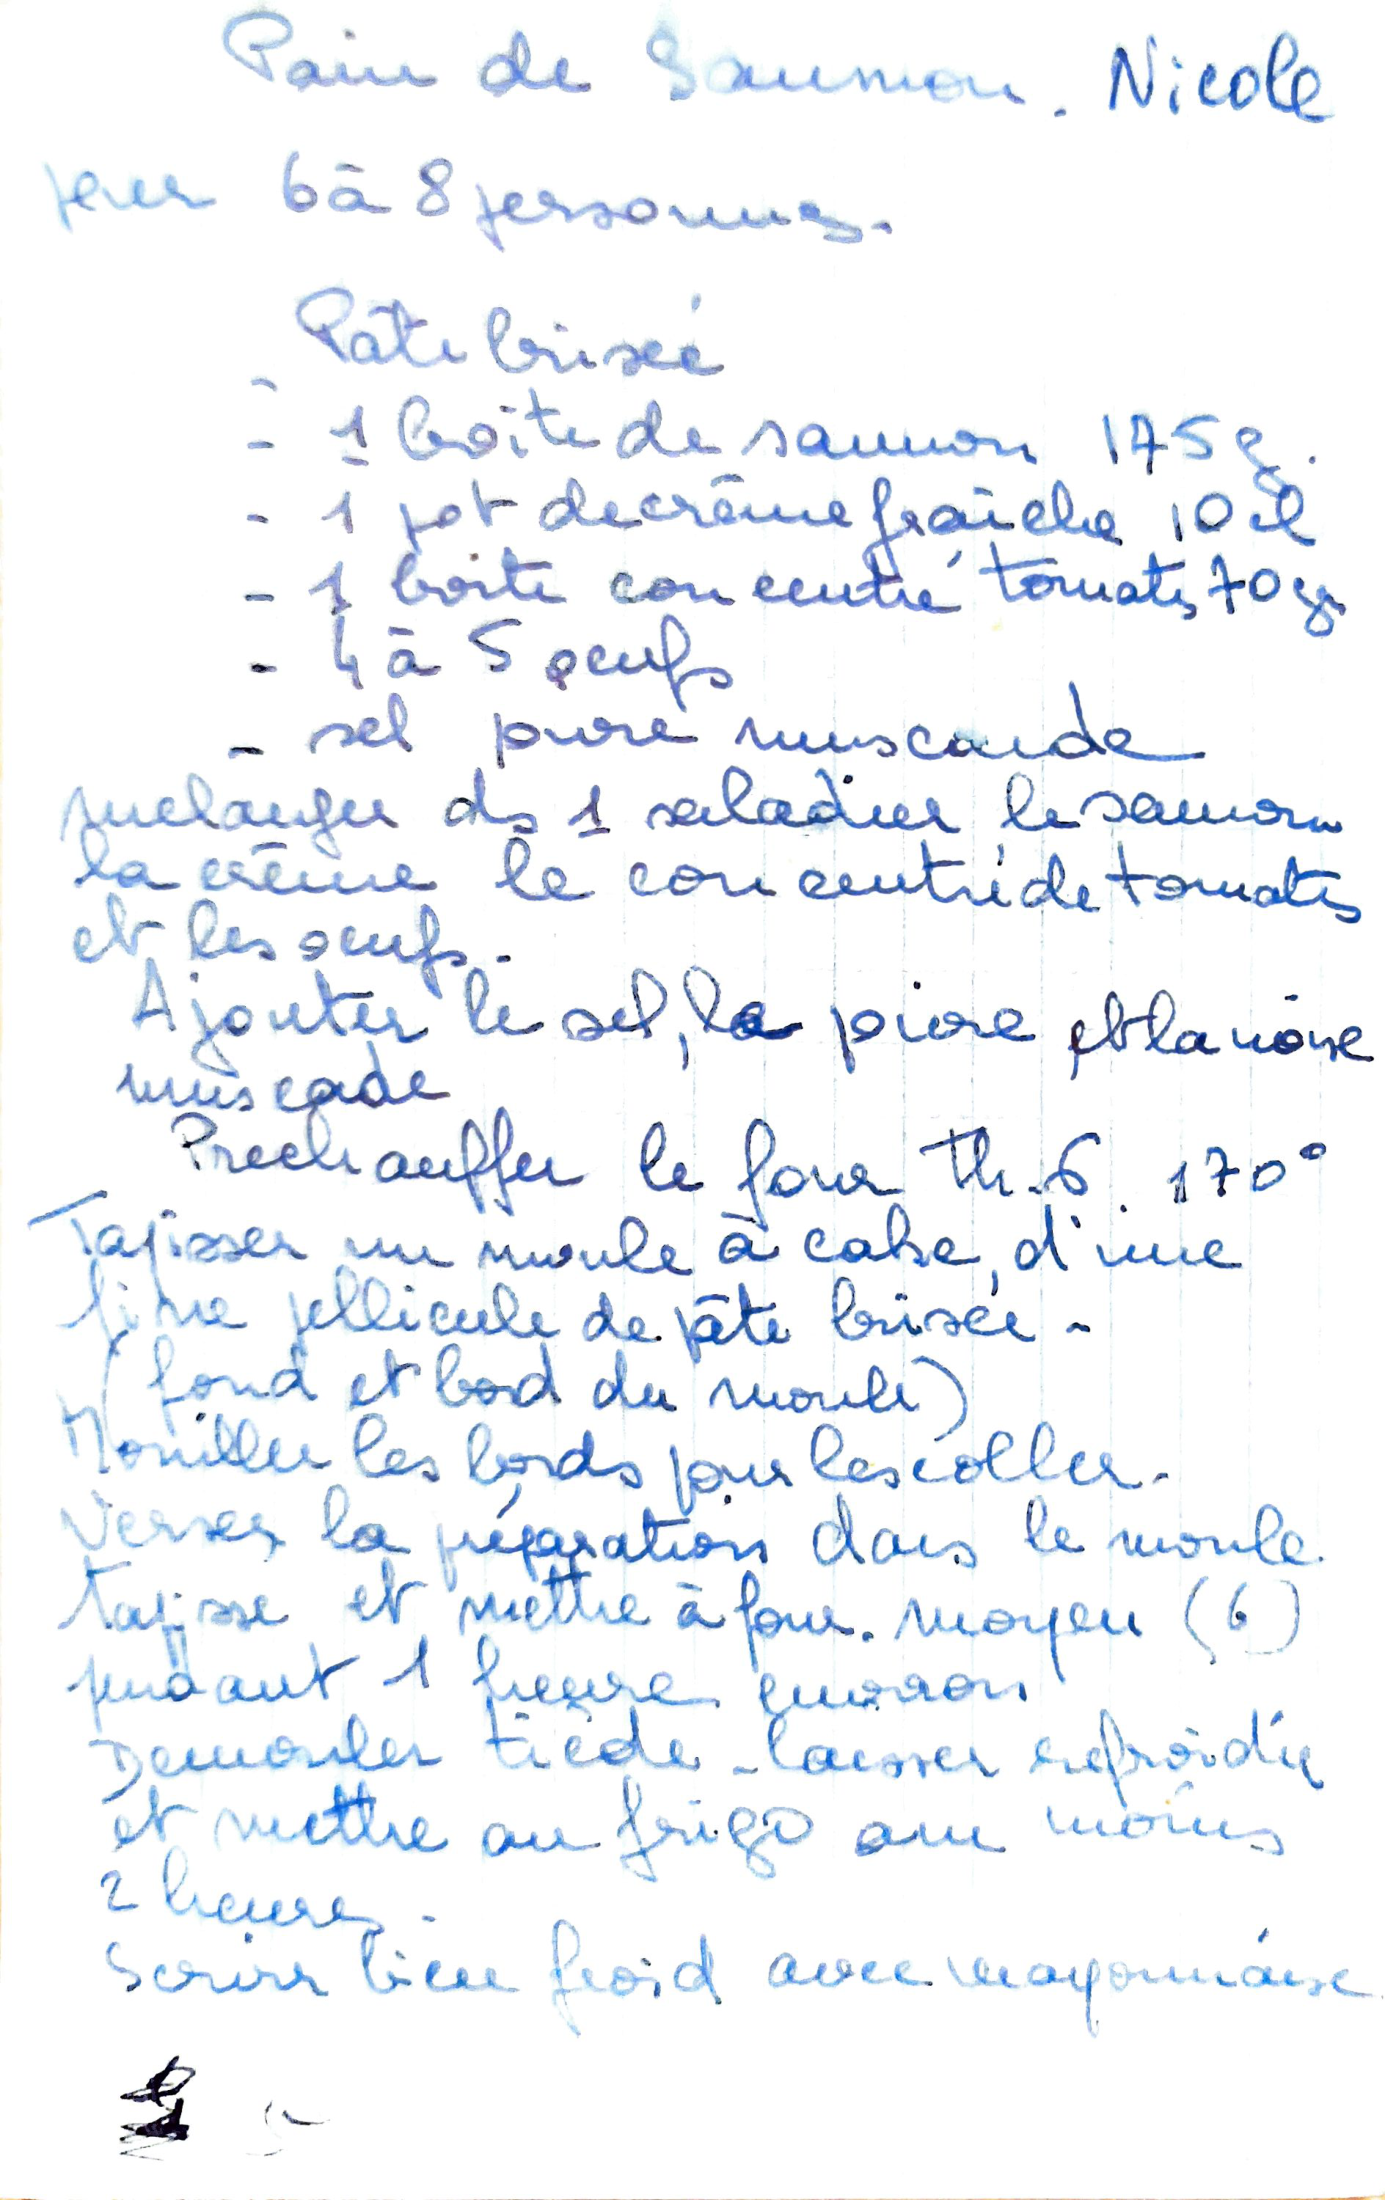 Pain de Saumon. Nicole
pour 6 à 8 personnes.
Pâte brisée
- 1 boîte de saumon 175 g.
- 1 pot de crême fraîche 10 cl
- 1 boite concentré tomates 70 gr
- 4 à 5 oeufs
- sel poivre muscade
melanger ds 1 saladier le saumon
la crême le concentré de tomates
et les oeufs.
Ajouter le sel, le poivre et la noix
muscade
Prechauffer le four Th. 6. 170°
Tapisser un moule à cake, d'une
fine pellicule de pâte brisée -
(fond et bord du moule)
Mouiller les bords pour les coller.
Verser la préparation dans le moule
tapissé et mettre à four. moyen (6)
pendant 1 heure environ
Demouler tiède - laisser refroidir
et mettre au frigo au moins
2 heures.
Servir bien froid avec mayonnaise
5